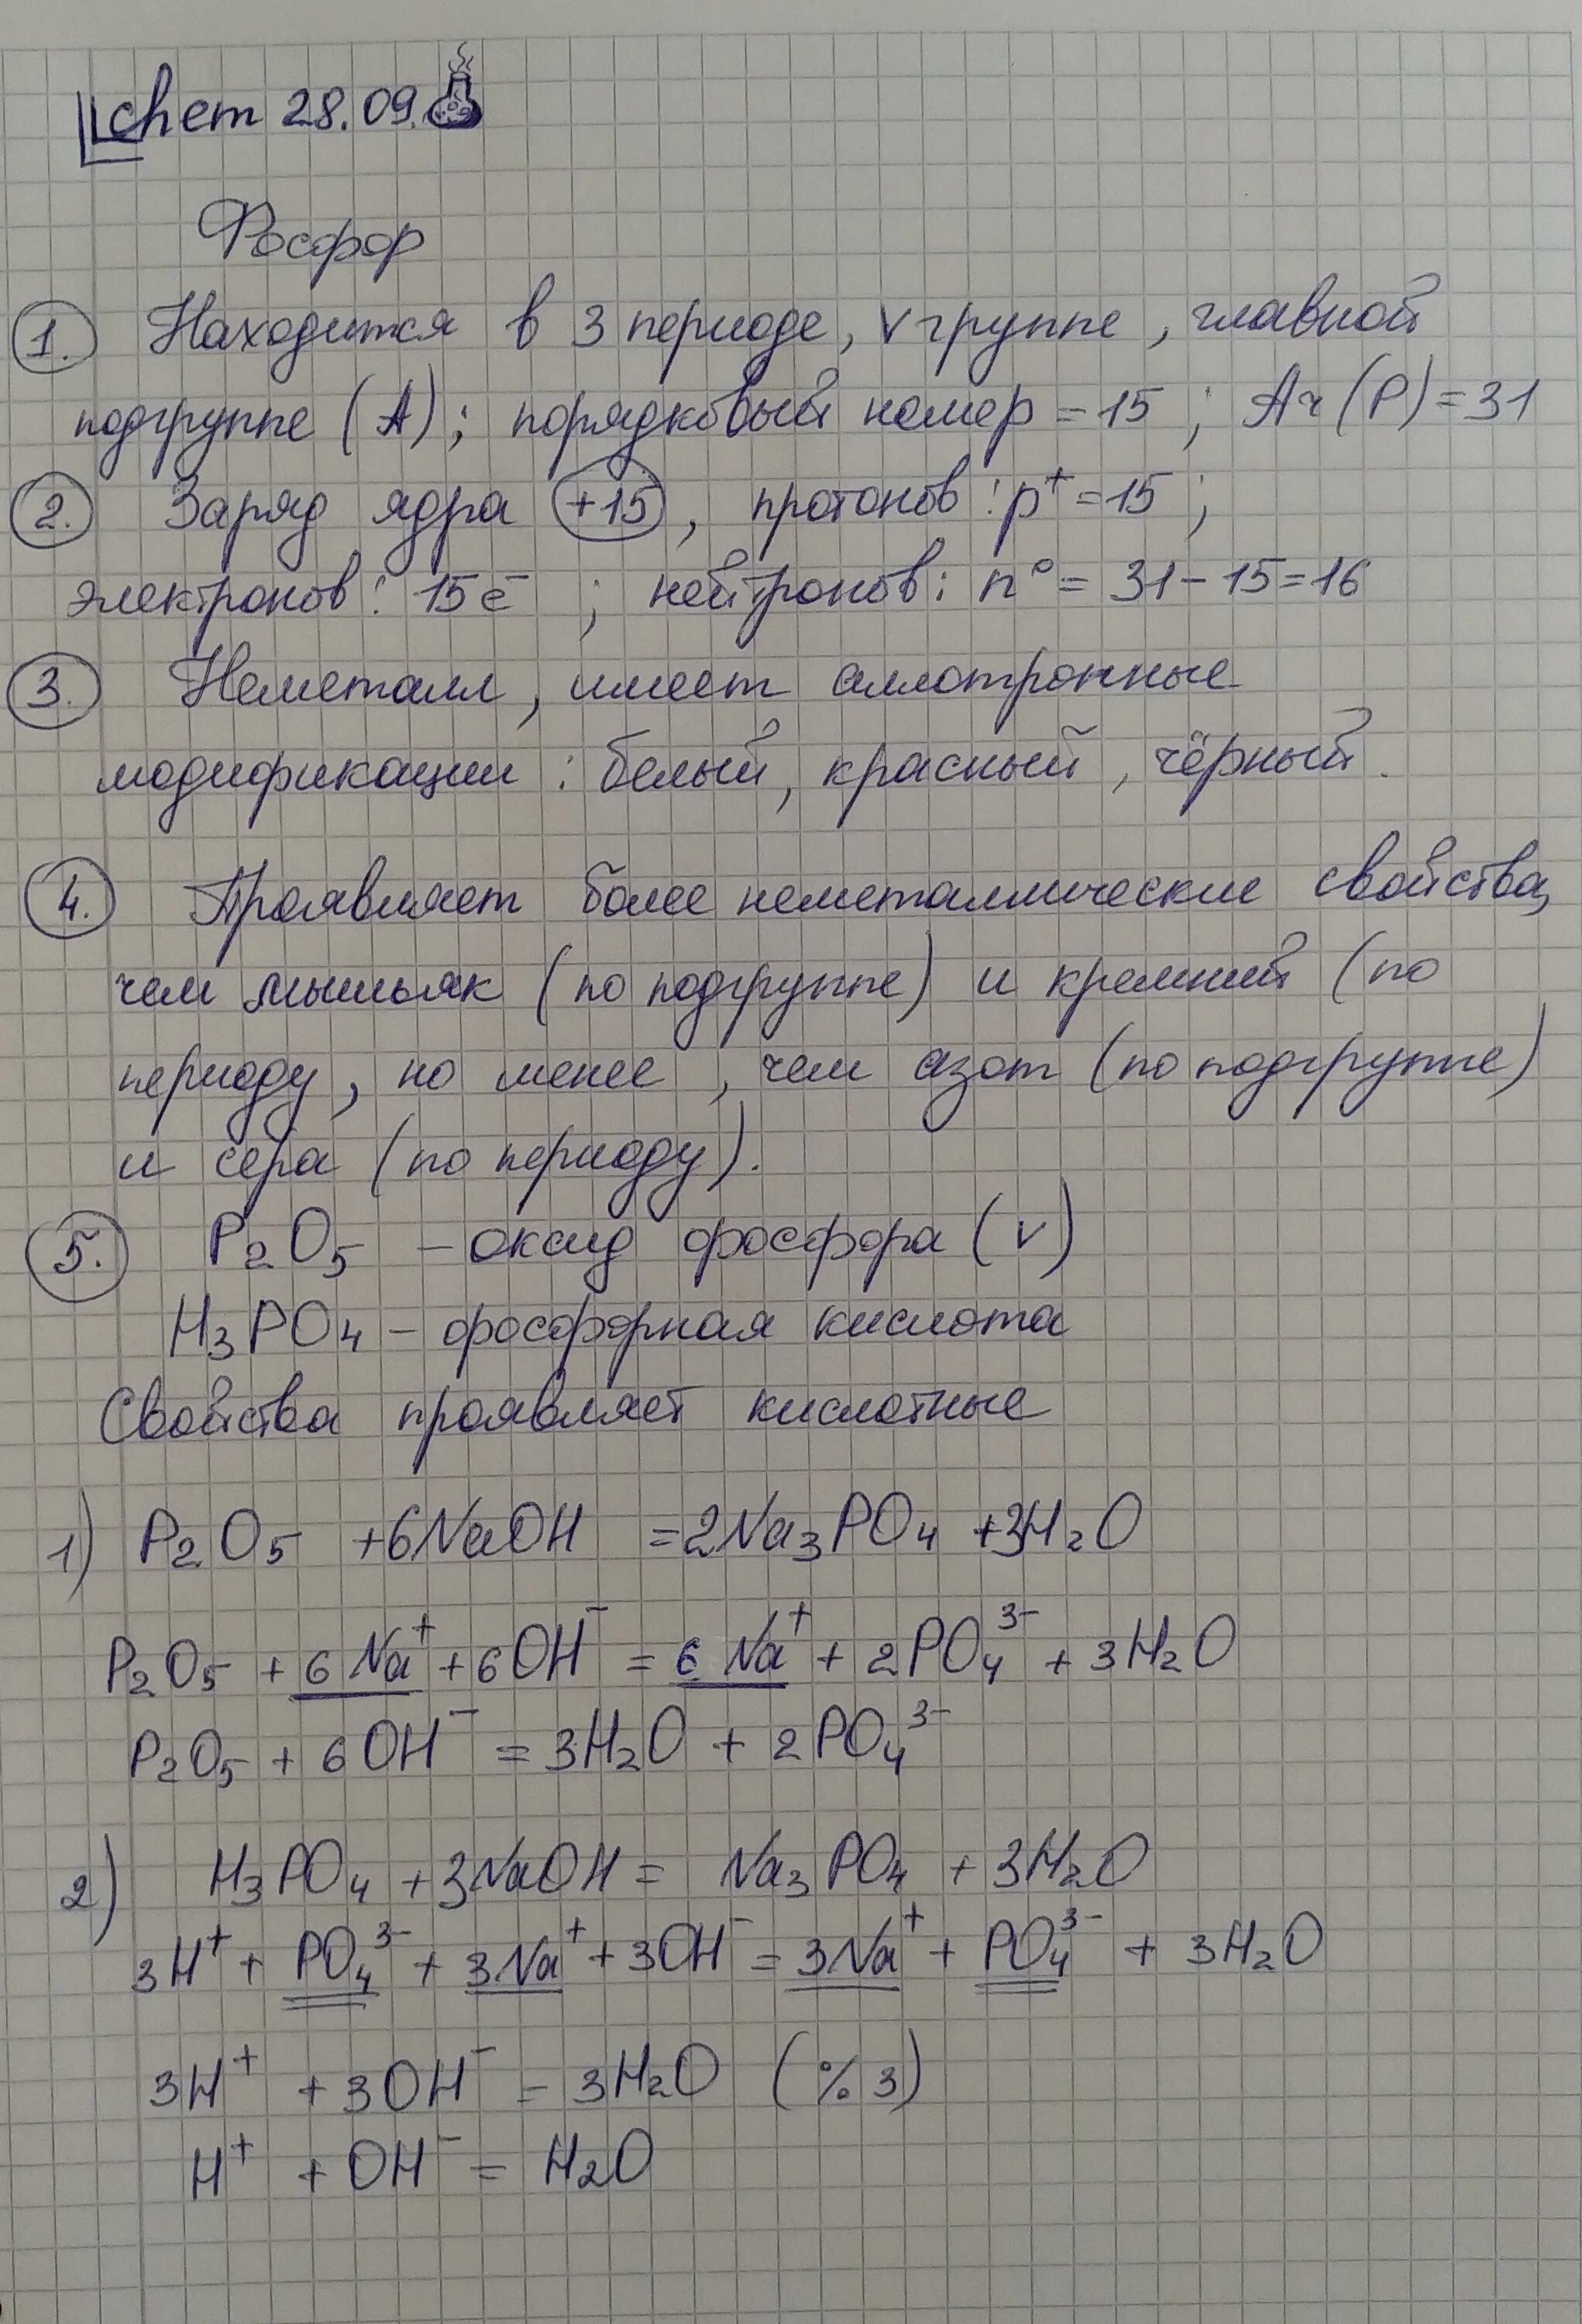 chem 28.09.
Фосфор
1. Находится в 3 периоде, V группе, главной
подгруппе (А); порядковый номер = 15; Ar (P) = 31
2. Заряд ядра +15, протонов: p⁺ = 15;
электронов: 15 ē ; нейтронов: n⁰ = 31 – 15 = 16
3. Неметалл, имеет аллотропные
модификации: белый, красный, чёрный.
4. Проявляет более неметаллические свойства,
чем мышьяк (по подгруппе) и кремний (по
периоду, но менее, чем азот (по подгруппе)
и сера (по периоду).
5. P₂O₅ – оксид фосфора (V)
H₃PO₄ – фосфорная кислота
Свойства проявляет кислотные
1) P₂O₅ + 6NaOH = 2Na₃PO₄ + 3H₂O
P₂O₅ + 6Na⁺ + 6OH⁻ = 6Na⁺ + 2PO₄³⁻ + 3H₂O
P₂O₅ + 6OH⁻ = 3H₂O + 2PO₄³⁻
2) H₃PO₄ + 3NaOH = Na₃PO₄ + 3H₂O
3H⁺ + PO₄³⁻ + 3Na⁺ + 3OH⁻ = 3Na⁺ + PO₄³⁻ + 3H₂O
3H⁺ + 3OH⁻ = 3H₂O (% 3)
H⁺ + OH⁻ = H₂O